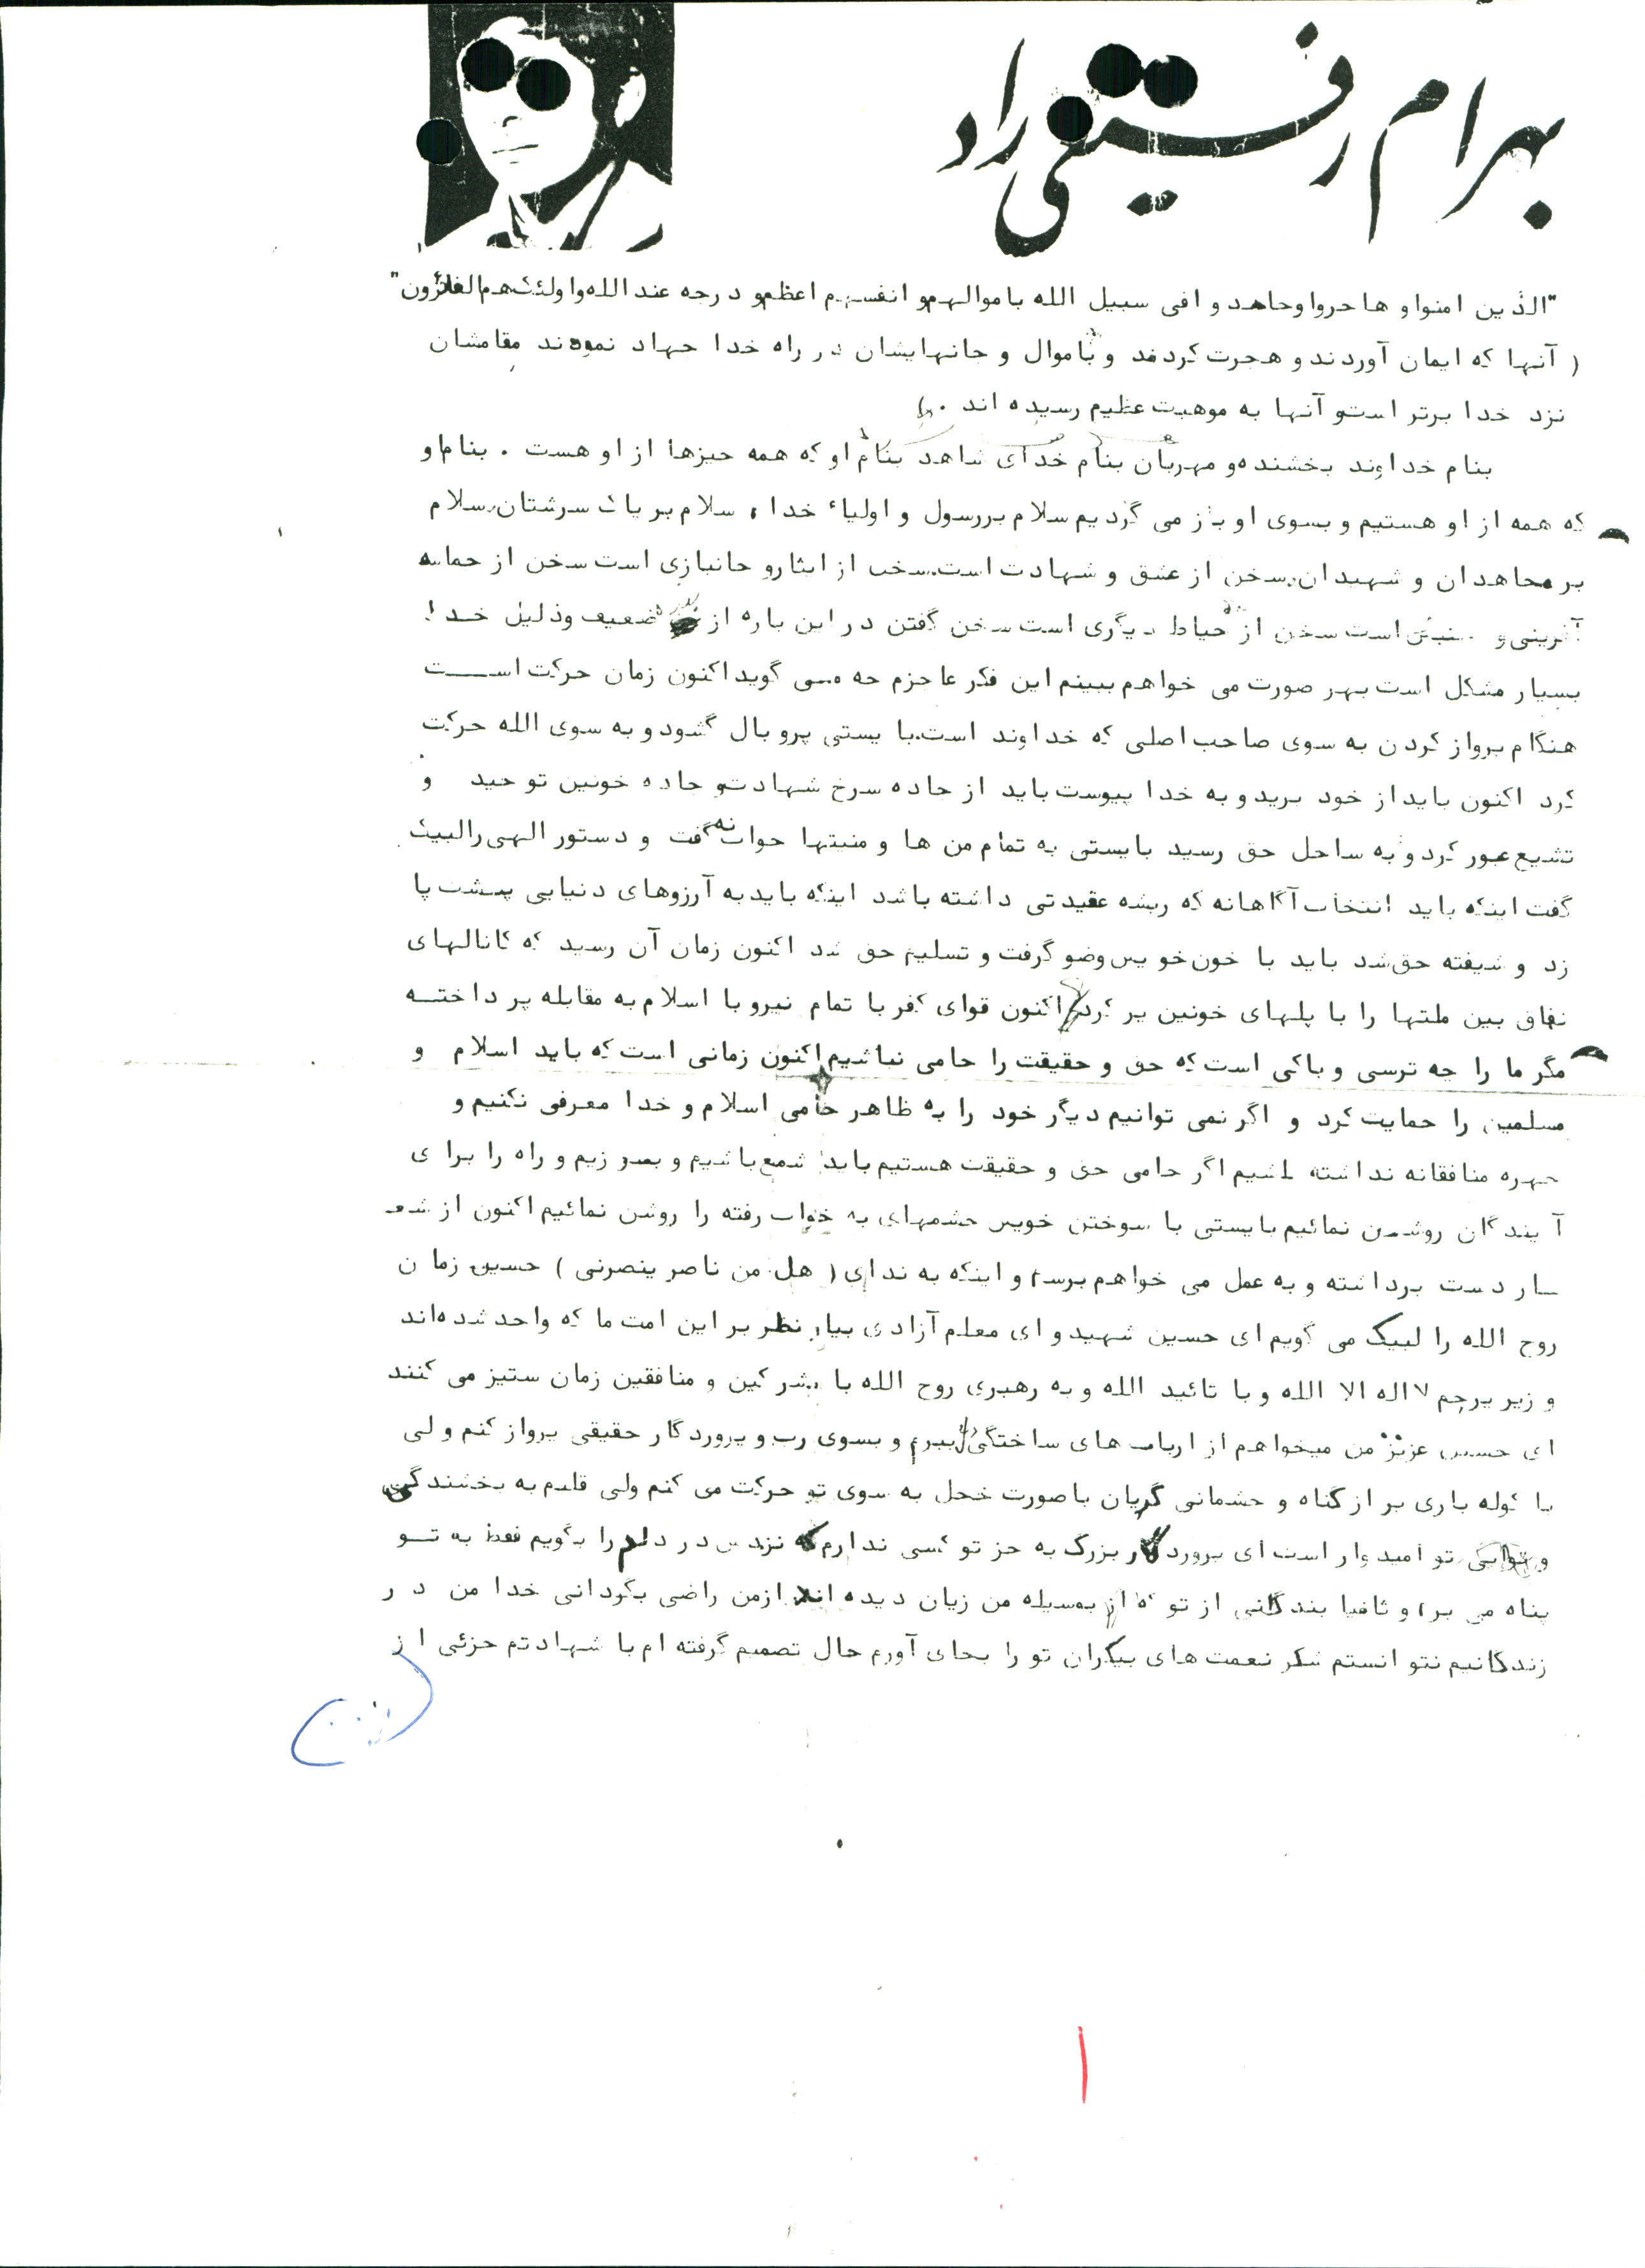 بهرام رفیقی راد
"الذین امنوا و هاجروا وجاهد و افی سبیل الله باموالهم و انفسهم اعظم و درجه عند الله وا ولئک هم الفائزون"
( آنها که ایمان آوردند و هجرت کردند و باموال و جانهایشان در راه خدا جهاد نمودند مقامشان
نزد خدا برتر است و آنها به موهبت عظیم رسیده اند . )
بنام خداوند بخشنده و مهربان بنام خدای شاهد بنام او که همه چیزها از او هست . بنام او
که همه از او هستیم و بسوی او باز می گردیم سلام بررسول و اولیاء خدا ، سلام بر پاک سرشتان سلام
بر مجاهدان و شهیدان. سخن از عشق و شهادت است. سخن از ایثار و جانبازی است سخن از حماسه
آفرینی و است سخن از حیاط دیگری است سخن گفتن در این باره از ضعیف وذلیل خدا
بسیار مشکل است بهر صورت می خواهم ببینم این فکر عاجزم چه می گوید اکنون زمان حرکت است
هنگام پرواز کردن به سوی صاحب اصلی که خداوند است. با یستی پرو بال گشود و به سوی الله حرکت
کرد اکنون باید از خود برید و به خدا پیوست باید از جاده سرخ شهادت و جاده خونین توحید و
تشیع عبور کرد و به ساحل حق رسید بایستی به تمام من ها و منیتها جواب نه گفت و دستور الهی را لبیک
گفت اینکه باید انتخاب آگاهانه که ریشه عقیدتی داشته باشد اینکه باید به آرزوهای دنیایی پشت پا
زد و شیفته حق شد باید با خون خویش وضو گرفت و تسلیم حق شد اکنون زمان آن رسید که کانالهای
نفاق بین ملتها را با پلهای خونین پر کرد اکنون قوای کفر با تمام نیرو با اسلام به مقابله پرداخته
مگر ما را چه ترسی و باکی است که حق و حقیقت را حامی نباشیم اکنون زمانی است که باید اسلام و
مسلمین را حمایت کرد و اگر نمی توانیم دیگر خود را به ظاهر حامی اسلام و خدا معرفی نکنیم و
چهره منافقانه نداشته باشیم اگر حامی حق و حقیقت هستیم باید شمع باشیم و بسوزیم و راه را برای
آیندگان روشن نمائیم بایستی با سوختن خویش چشمهای به خواب رفته را روشن نمائیم اکنون از شعـ
ـار دست برداشته و به عمل می خواهم برسم و اینکه به ندای ( هل من ناصر ینصرنی ) حسین زمان
روح الله را لبیک می گویم ای حسین شهید و ای معلم آزادی بیا نظر بر این امت ما که واحد شده اند
و زیر پرچم لا اله الا الله و با تائید الله و به رهبری روح الله با مشرکین و منافقین زمان ستیز می کنند
ای حسین عزیز من میخواهم از ارباب های ساختگی ببرم و بسوی رب و پروردگار حقیقی پرواز کنم ولی
با کوله باری پر از گناه و چشمانی گریان باصورت خجل به سوی تو حرکت می کنم ولی قلبم به بخشندگی
و توابی تو امیدوار است ای پروردگار بزرگ به جز تو کسی ندارم که نزدش درد دلم را بگویم فقط به تو
پناه می برم و ثانیا بندگانی از تو که از بوسیله من زیان دیده اند ازمن راضی بگردانی خدا من در
زندگانیم نتوانستم شکر نعمت های بیکران تو را بجای آورم حال تصمیم گرفته ام با شهادتم جزئی از
۱